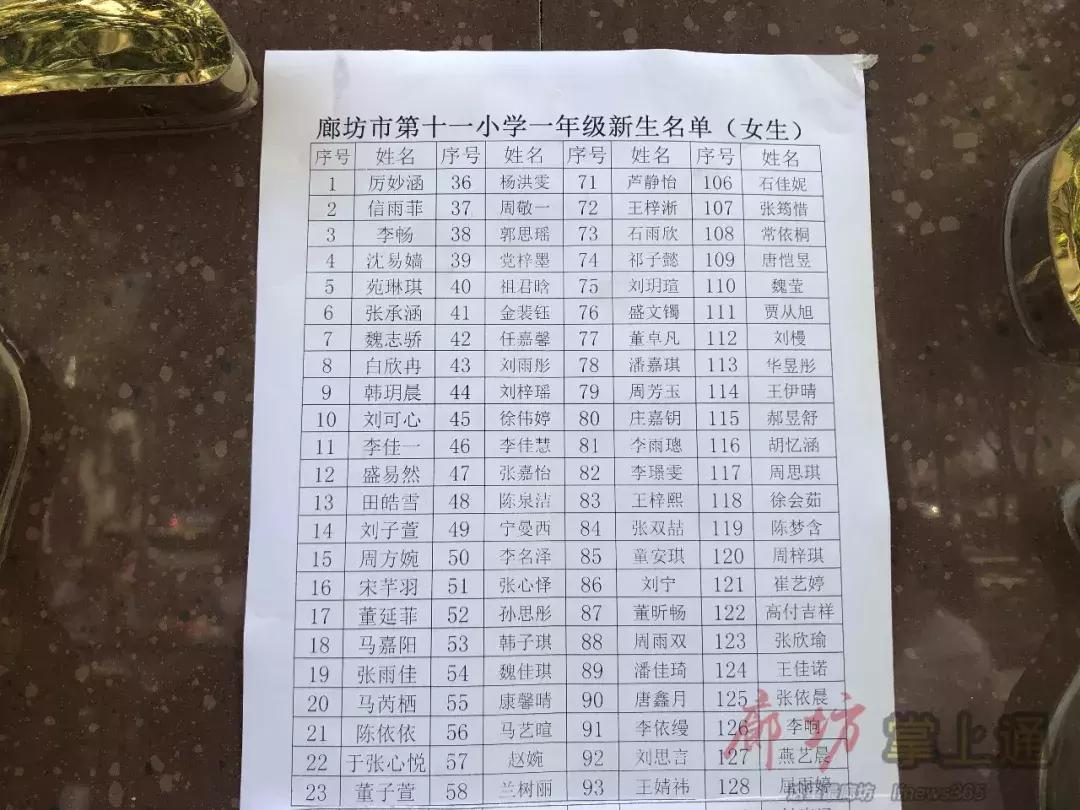 廊坊市第十一小学一年级新生名单（女生）
序号 姓名 序号 姓名 序号 姓名 序号 姓名
1 厉妙涵 36 杨洪雯 71 芦静怡 106 石佳妮
2 信雨菲 37 周敬一 72 王梓淅 107 张筠惜
3 李畅 38 郭思瑶 73 石雨欣 108 常依桐
4 沈易嫱 39 党梓墨 74 祁子懿 109 唐恺昱
5 苑琳琪 40 祖君晗 75 刘玥瑄 110 魏莹
6 张承涵 41 金裴钰 76 盛文镯 111 贾从旭
7 魏志骄 42 任嘉馨 77 董卓凡 112 刘槾
8 白欣冉 43 刘雨彤 78 潘嘉琪 113 华昱彤
9 韩玥晨 44 刘梓瑶 79 周芳玉 114 王伊晴
10 刘可心 45 徐伟婷 80 庄嘉钥 115 郝昱舒
11 李佳一 46 李佳慧 81 李雨璁 116 胡忆涵
12 盛易然 47 张嘉怡 82 李璟雯 117 周思琪
13 田皓雪 48 陈泉洁 83 王梓熙 118 徐会茹
14 刘子萱 49 宁曼西 84 张双喆 119 陈梦含
15 周方婉 50 李名泽 85 童安琪 120 周梓琪
16 宋芊羽 51 张心怿 86 刘宁 121 崔艺婷
17 董延菲 52 孙思彤 87 董昕畅 122 高付吉祥
18 马嘉阳 53 韩子琪 88 周雨双 123 张欣瑜
19 张雨佳 54 魏佳琪 89 潘佳琦 124 王佳诺
20 马芮栖 55 康馨晴 90 唐鑫月 125 张依晨
21 陈依依 56 马艺暄 91 李依缦 126 李响
22 于张心悦 57 赵婉 92 刘思言 127 燕艺晨
23 董子萱 58 兰树丽 93 王婧祎 128 屈雨婷
廊坊掌上通